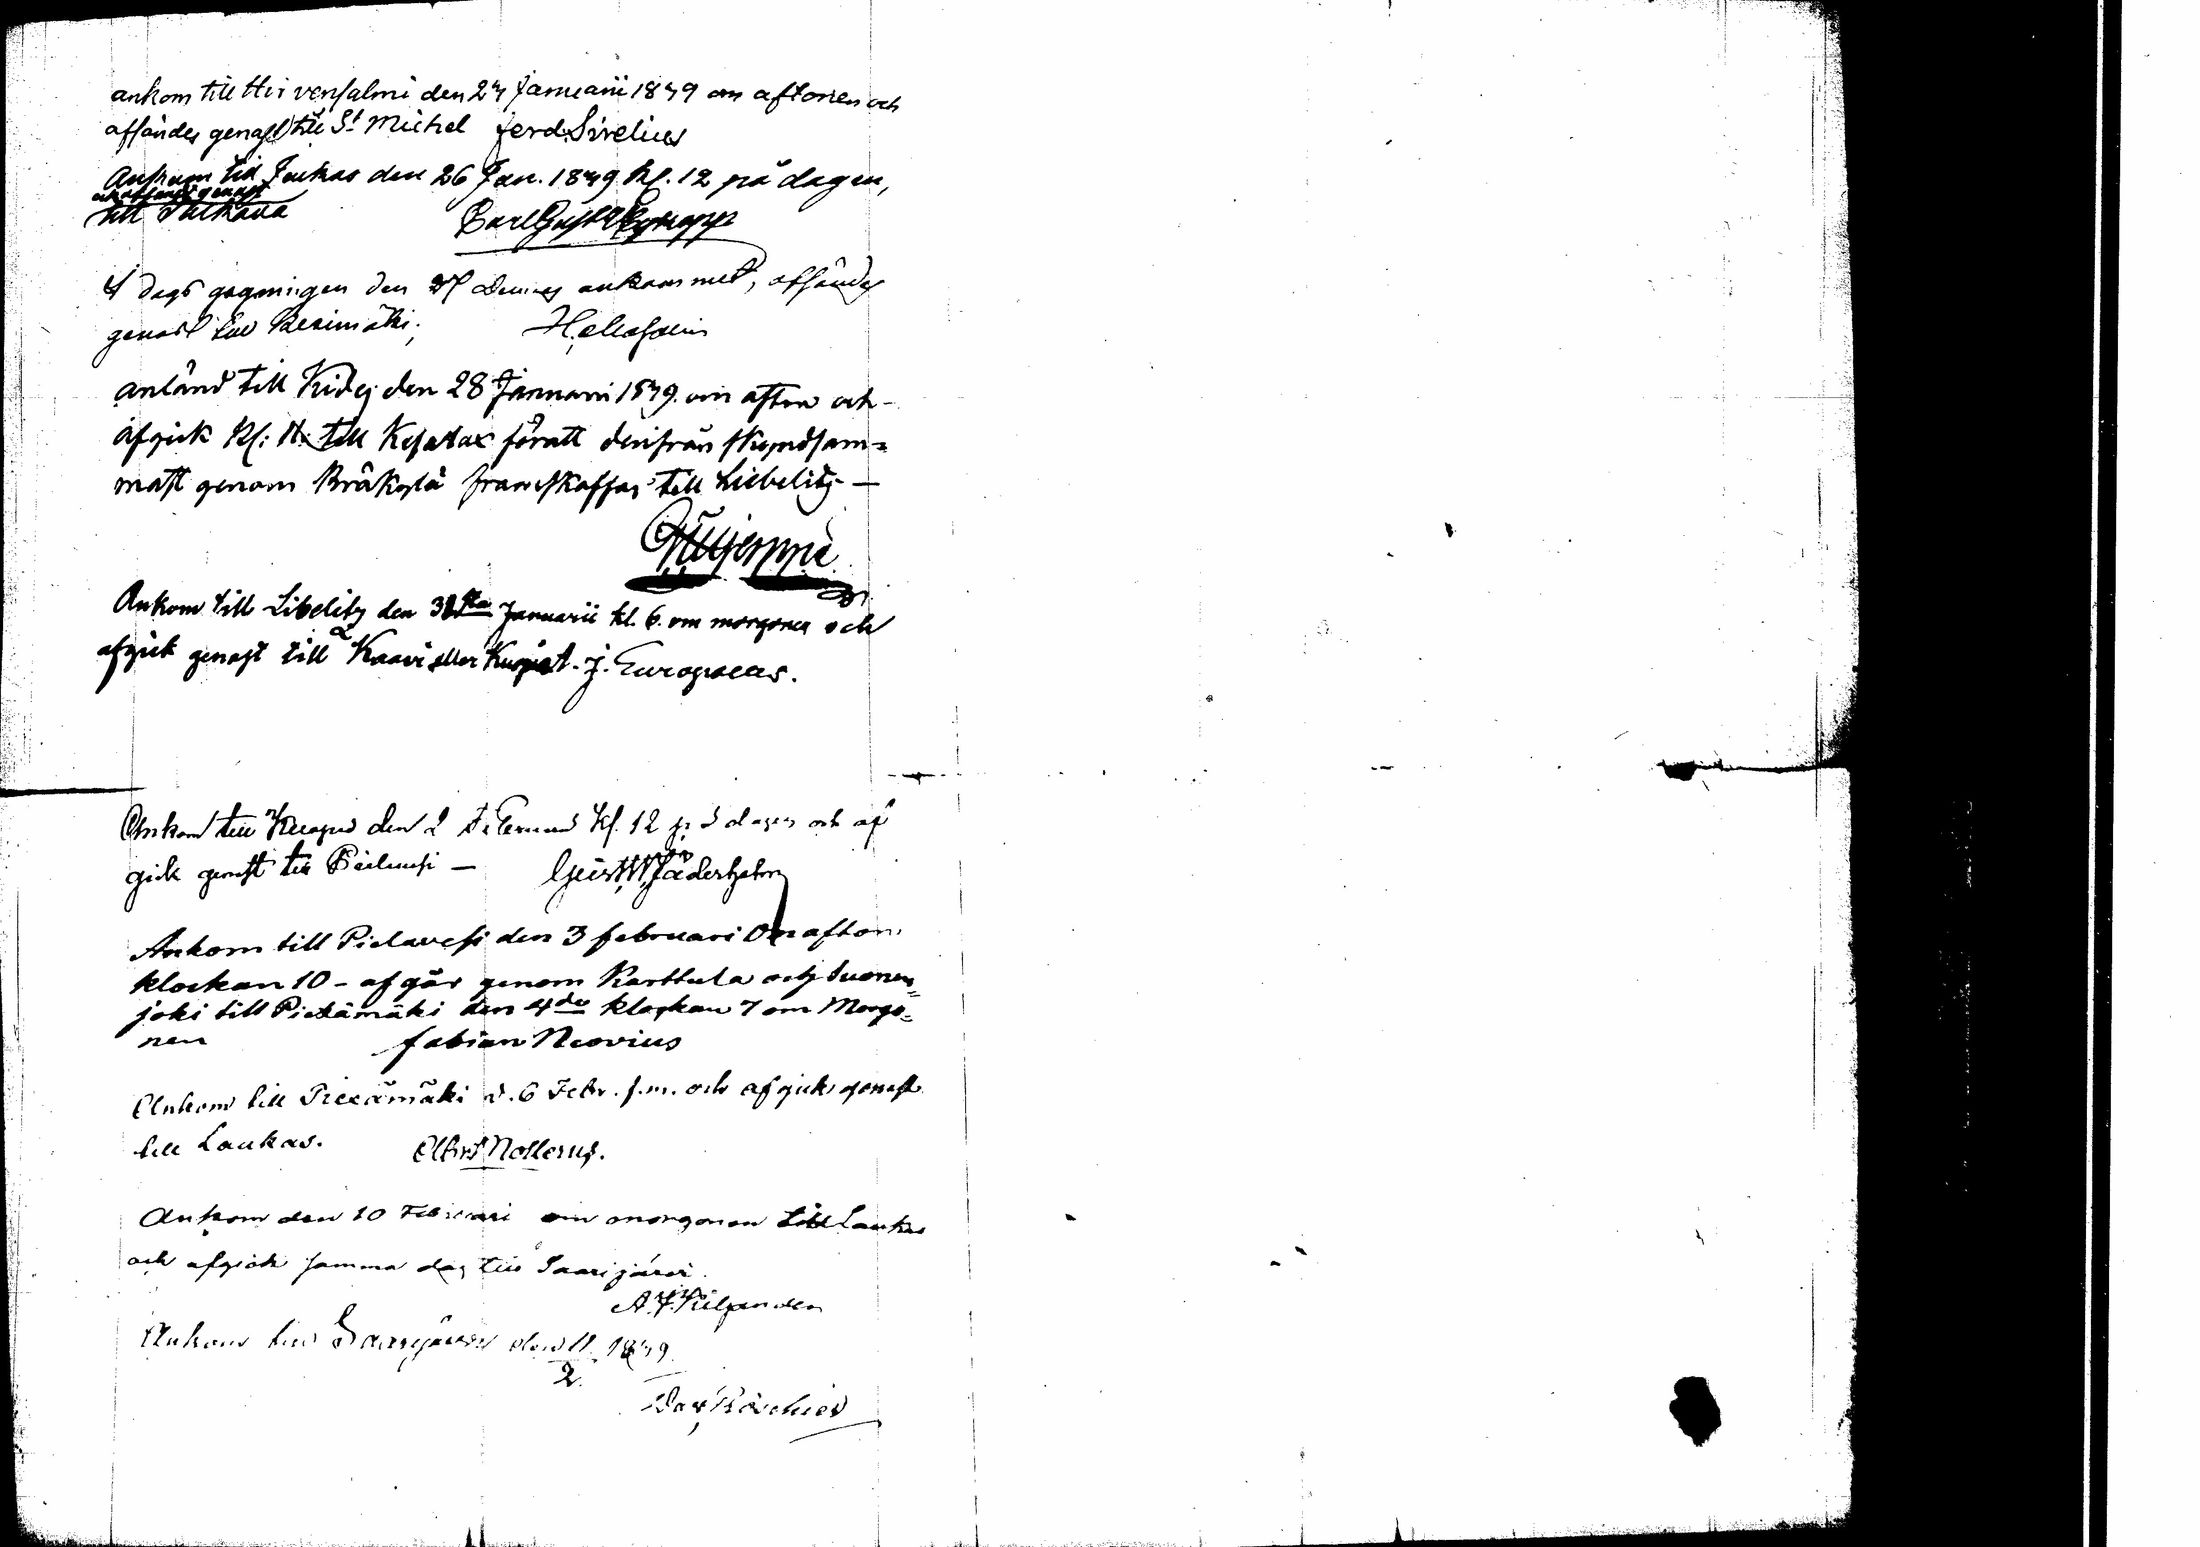 ankom till Hirvensalmi den 24 Januarii 1849 om aftonen och
affändes genast till St Michel Ferd. Sirelius
Ankom till Jockas den 26 Jan. 1849 kl. 12 på dagen,
och affändes genast
till Sulkava Carl Gust.
I dag den 27 dennes ankommet, affändes
genast till Kerimäki.
anländ till Kides den 28 Januarii 1849. om afton och
afgick kl: till Kesalax föratt derifrån skyndsam=
mast genom Bräkylä framskaffas till Liebelitz —
Ankom till Libelitz den 31sta Januarii kl. 6. om morgonen och
afgick genast till Kaavi eller Kuopio. J. Europaeus.
Ankom till Kuopio den 2 Februarii kl. 12 på dagen och af
gick genast till Pielavesi — Gust. W. Jäderholm
Ankom till Pielavesi den 3 februari Om afton
klockan 10 - afgår genom Karttula och Suonen=
joki till Pieksämäki den 4de klockan 7 om Morgo=
nen Fabian Neovius
Ankom till Piexämäki d. 6 Febr. f.m. och afgick genast
till Laukas. Albert Nollerus.
Ankom den 10 Februari om morgonen till Laukas
och afgick samma dag till Saarijärvi.
A. F. Kilpinen
Ankom till Saarijärvi den 11 1849.
2.